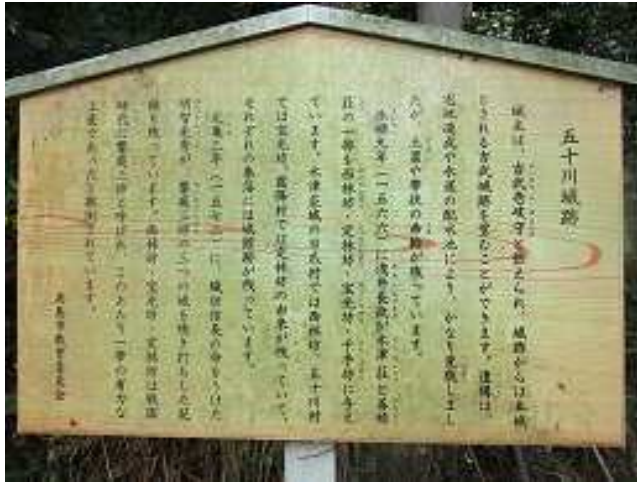 五十川城跡
城主は、吉武壱岐守と伝えられ、城跡からは本城
とされる吉武城跡を望むことができます。遺構は、
宅地造成や水道の配水池により、かなり見散しまし
たが、土塁や曲輪が残っています。
永禄九年（一五六六）に浅井長政が木津荘と善積
荘の一部を西林坊・定林坊・宝光坊・千手坊に与え
ています。木津荘域の日爪村では西林坊、五十川村
では宝光坊、霜降村では定林坊の由来が残っていて、
それぞれの集落には城館跡が残っています。
元亀三年（一五七二）に、織田信長の命をうけた
明智光秀が、饗庭三坊の三つの城を焼き打ちした記
録も残っています。西林坊・宝光坊・定林坊は戦国
時代に饗庭三坊と呼ばれ、このあたり一帯の有力な
土豪であったと推測されています。
高島市教育委員会